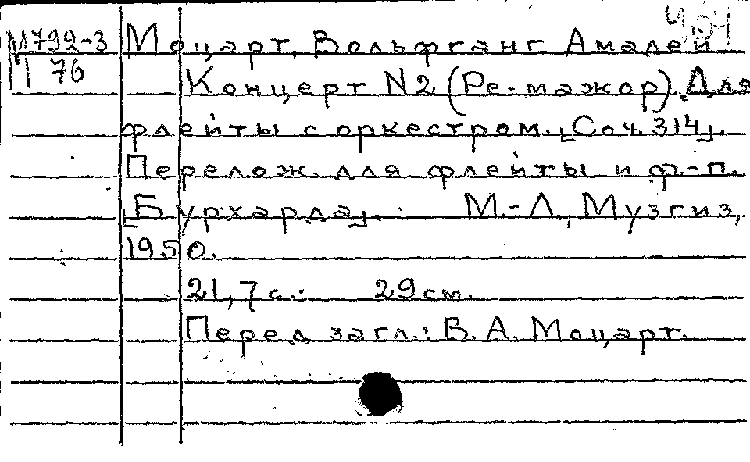 М792-3 Моцарт, Вольфганг Амадей
П 76 Концерт N2 (Ре-мажор). Для
флейты с оркестром. [Соч. 314].
Перелож. для флейты и ф.-п.
[Бурхарда]. М.-Л., Музгиз,
1950.
21, 7 с. 29 см.
Перед загл.: В. А. Моцарт.